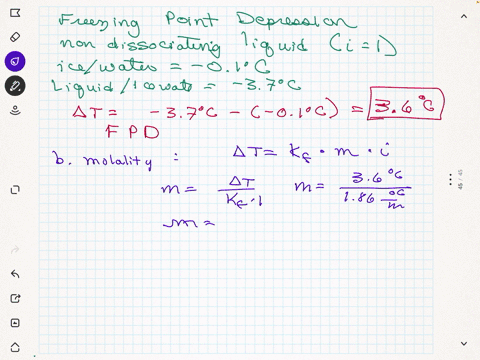 Freezing Point Depression
non dissociating liquid (i=1)
ice/water = -0.1°C
Liquid/icewate = -3.7°C
ΔT = -3.7°C - (-0.1°C) = 3.6°C
FPD
b. molality : ΔT = Kf · m · i
m = ΔT / Kf · 1 m = 3.6°C / 1.86 °C/m
m =
45 / 45